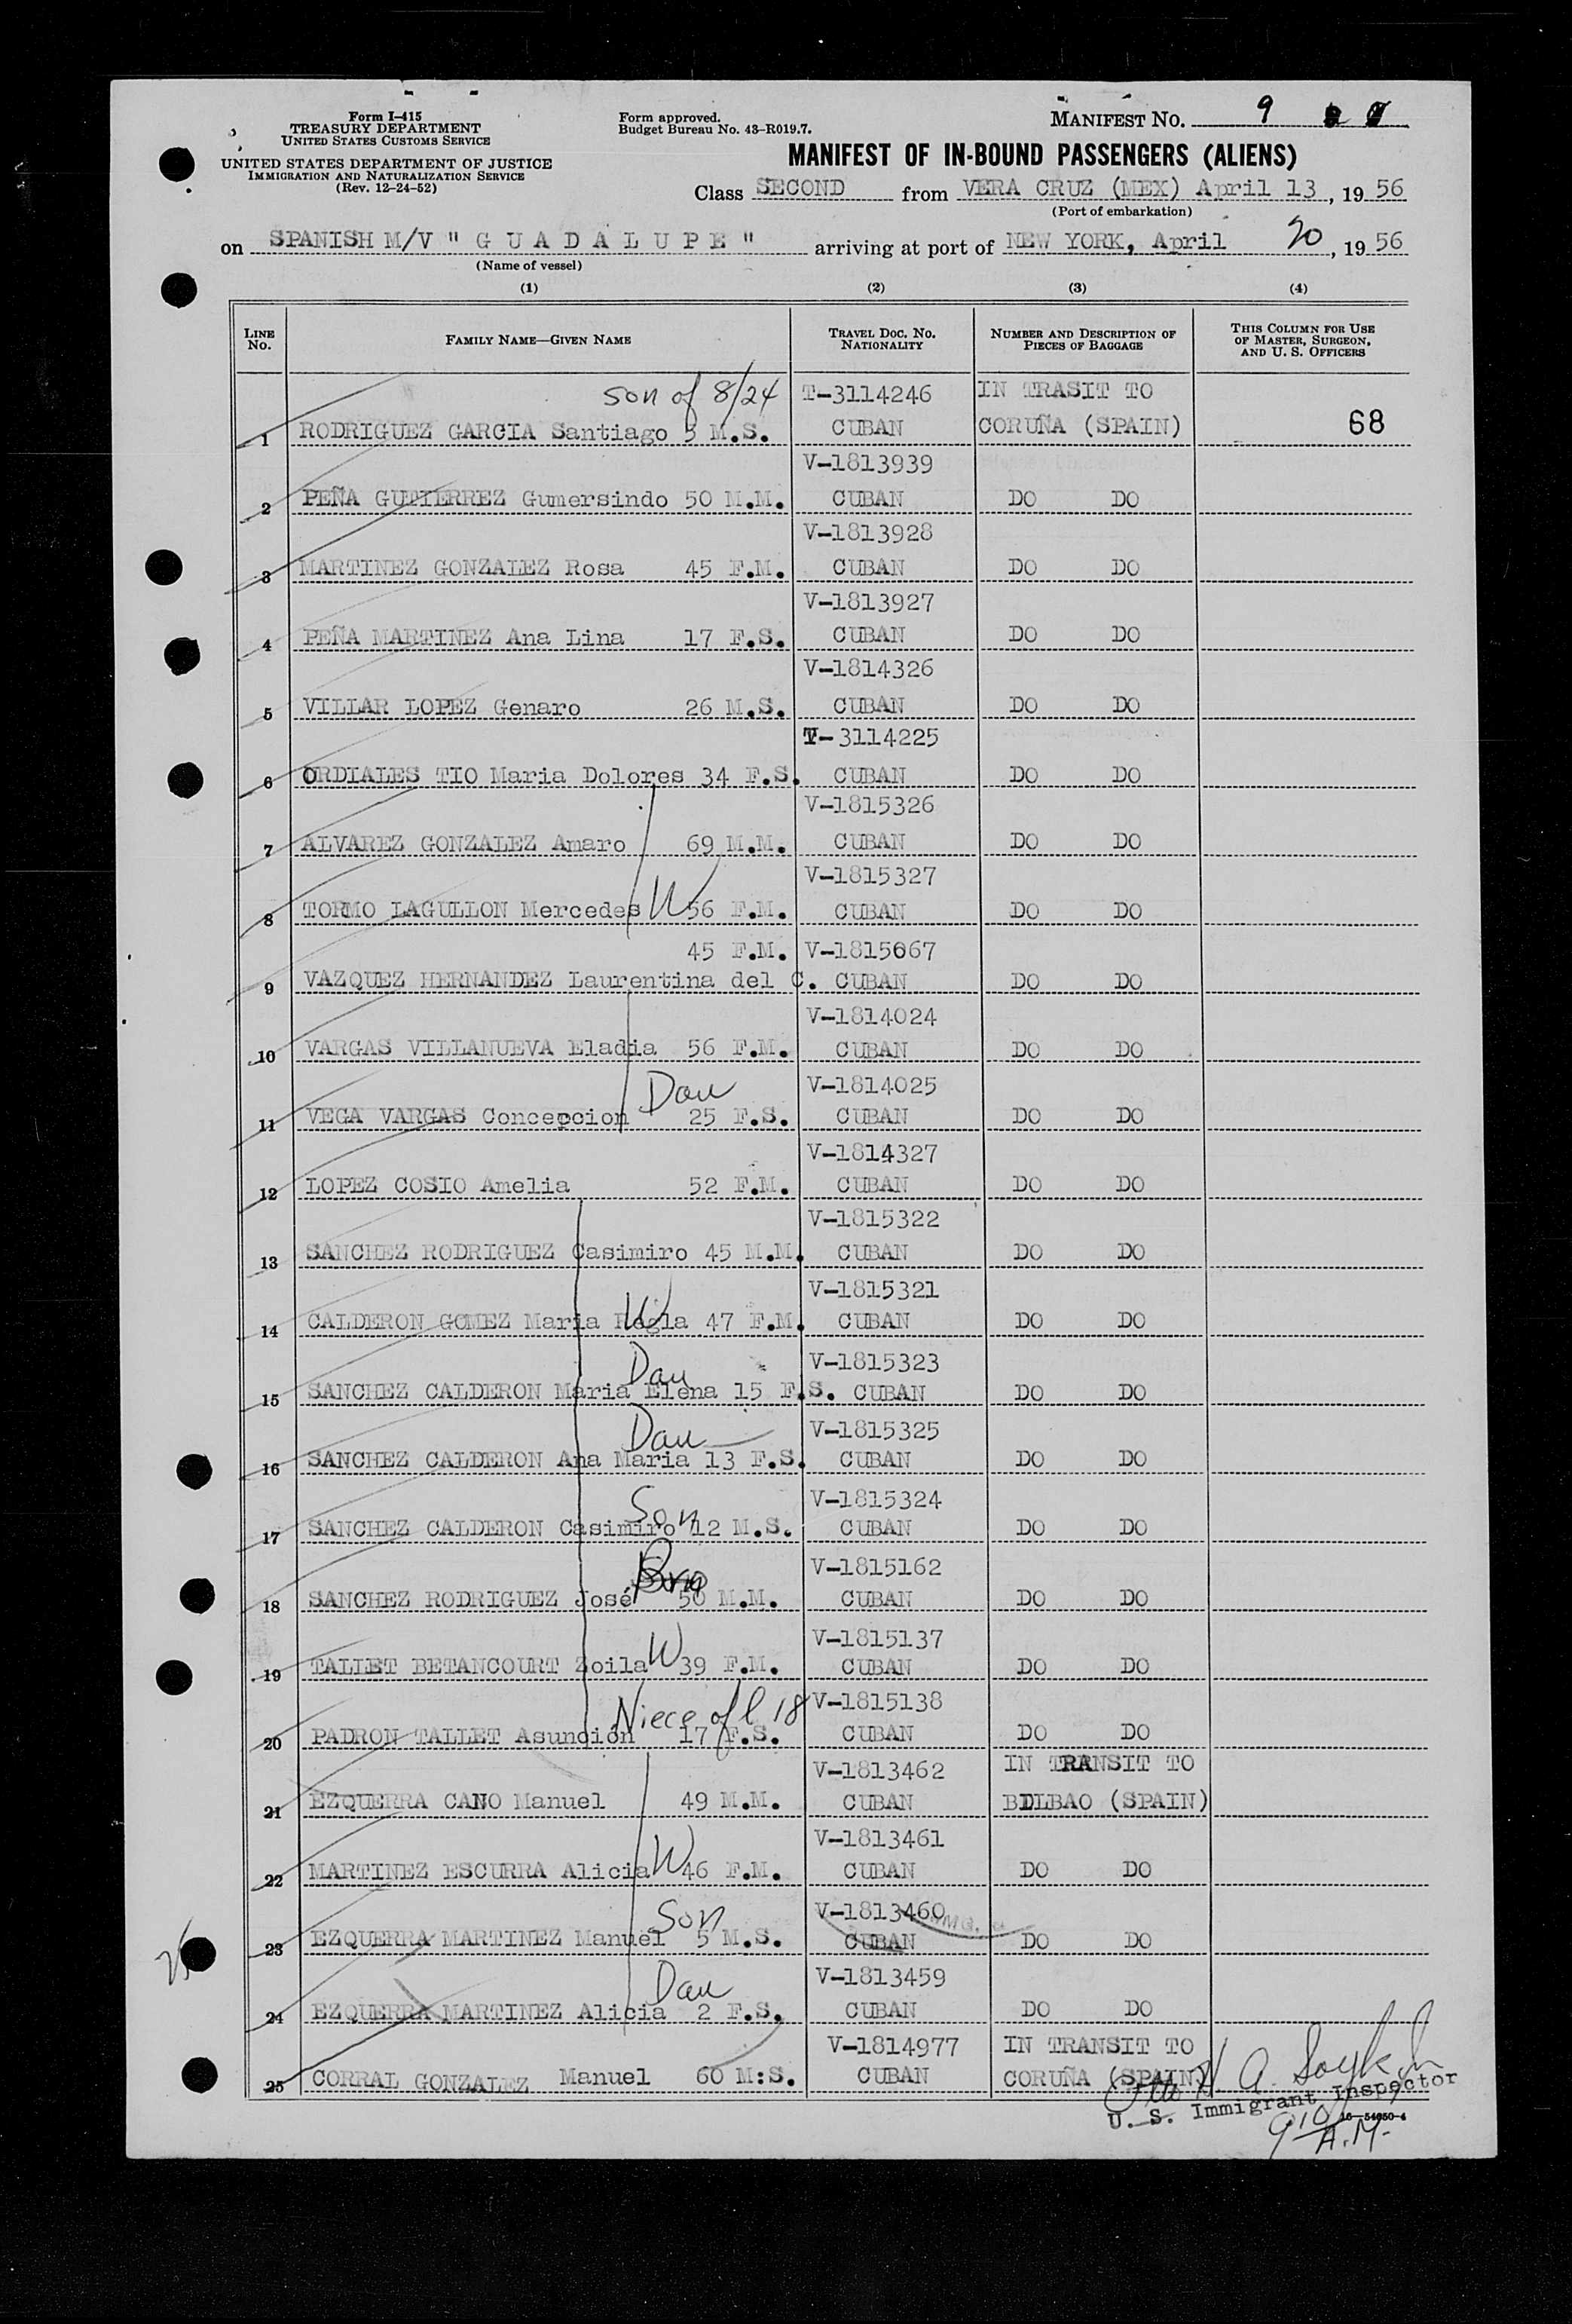 Form I-415
TREASURY DEPARTMENT
UNITED STATES CUSTOMS SERVICE
UNITED STATES DEPARTMENT OF JUSTICE
IMMIGRATION AND NATURALIZATION SERVICE
(Rev. 12-24-52)
Form approved.
Budget Bureau No. 43-R019.7.
MANIFEST NO. 9
MANIFEST OF IN-BOUND PASSENGERS (ALIENS)
Class SECOND from VERA CRUZ (MEX) April 13, 19 56
(Port of embarkation)
on SPANISH M/V " G U A D A L U P E " arriving at port of NEW YORK, April 20, 19 56
(Name of vessel)
(1) (2) (3) (4)
LINE NO. FAMILY NAME—GIVEN NAME TRAVEL DOC. NO. NATIONALITY NUMBER AND DESCRIPTION OF PIECES OF BAGGAGE THIS COLUMN FOR USE OF MASTER, SURGEON, AND U. S. OFFICERS
son of 8/24 T-3114246 IN TRASIT TO
1 RODRIGUEZ GARCIA Santiago 3 M.S. CUBAN CORUÑA (SPAIN) 68
V-1813939
2 PEÑA GUTIERREZ Gumersindo 50 M.M. CUBAN DO DO
V-1813928
3 MARTINEZ GONZALEZ Rosa 45 F.M. CUBAN DO DO
V-1813927
4 PEÑA MARTINEZ Ana Lina 17 F.S. CUBAN DO DO
V-1814326
5 VILLAR LOPEZ Genaro 26 M.S. CUBAN DO DO
T-3114225
6 ORDIALES TIO Maria Dolores 34 F.S. CUBAN DO DO
V-1815326
7 ALVAREZ GONZALEZ Amaro 69 M.M. CUBAN DO DO
V-1815327
8 TORMO LAGULLON Mercedes W 56 F.M. CUBAN DO DO
45 F.M. V-1815067
9 VAZQUEZ HERNANDEZ Laurentina del C. CUBAN DO DO
V-1814024
10 VARGAS VILLANUEVA Eladia 56 F.M. CUBAN DO DO
Dau V-1814025
11 VEGA VARGAS Concepcion 25 F.S. CUBAN DO DO
V-1814327
12 LOPEZ COSIO Amelia 52 F.M. CUBAN DO DO
V-1815322
13 SANCHEZ RODRIGUEZ Casimiro 45 M.M. CUBAN DO DO
V-1815321
14 CALDERON GOMEZ Maria Regla W 47 F.M. CUBAN DO DO
Dau V-1815323
15 SANCHEZ CALDERON Maria Elena 15 F.S. CUBAN DO DO
Dau V-1815325
16 SANCHEZ CALDERON Ana Maria 13 F.S. CUBAN DO DO
Son V-1815324
17 SANCHEZ CALDERON Casimiro 12 M.S. CUBAN DO DO
Bro V-1815162
18 SANCHEZ RODRIGUEZ José 50 M.M. CUBAN DO DO
V-1815137
19 TALLET BETANCOURT Zoila W 39 F.M. CUBAN DO DO
Niece of l 18 V-1815138
20 PADRON TALLET Asunción 17 F.S. CUBAN DO DO
V-1813462 IN TRANSIT TO
21 EZQUERRA CANO Manuel 49 M.M. CUBAN BILBAO (SPAIN)
V-1813461
22 MARTINEZ ESCURRA Alicia W 46 F.M. CUBAN DO DO
Son V-1813460
23 EZQUERRA MARTINEZ Manuel 5 M.S. CUBAN DO DO
Dau V-1813459
24 EZQUERRA MARTINEZ Alicia 2 F.S. CUBAN DO DO
V-1814977 IN TRANSIT TO
25 CORRAL GONZALEZ Manuel 60 M:S. CUBAN CORUÑA (SPAIN)
25
U. S. Immigrant Inspector
16—54050-4
9 10 A.M.